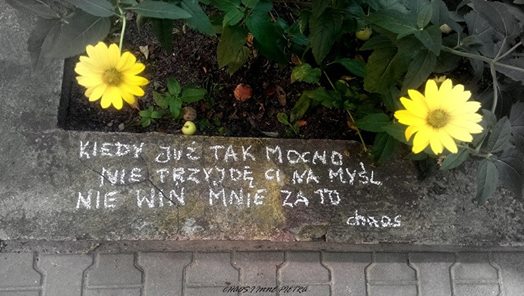 KIEDY JUŻ TAK MOCNO
NIE PRZYJDĘ CI NA MYŚL
NIE WIŃ MNIE ZA TO
chaos
CHAOS I INNE PIĘTRA